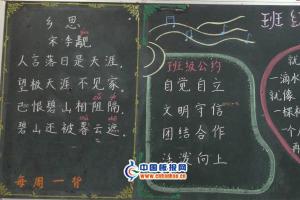 乡思
宋李觏
人言落日是天涯，
望极天涯不见家
已恨碧山相阻隔，
碧山还被暮云遮。
每周一背
班级公约
自觉自立
文明守信
团结合作
活泼向上
班级
一滴水
就像
一棵
中国板报网